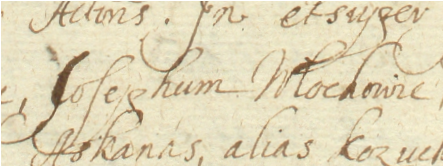 Actiris. In et super
Josephum Mlochowic
Askanas, alias kozuch